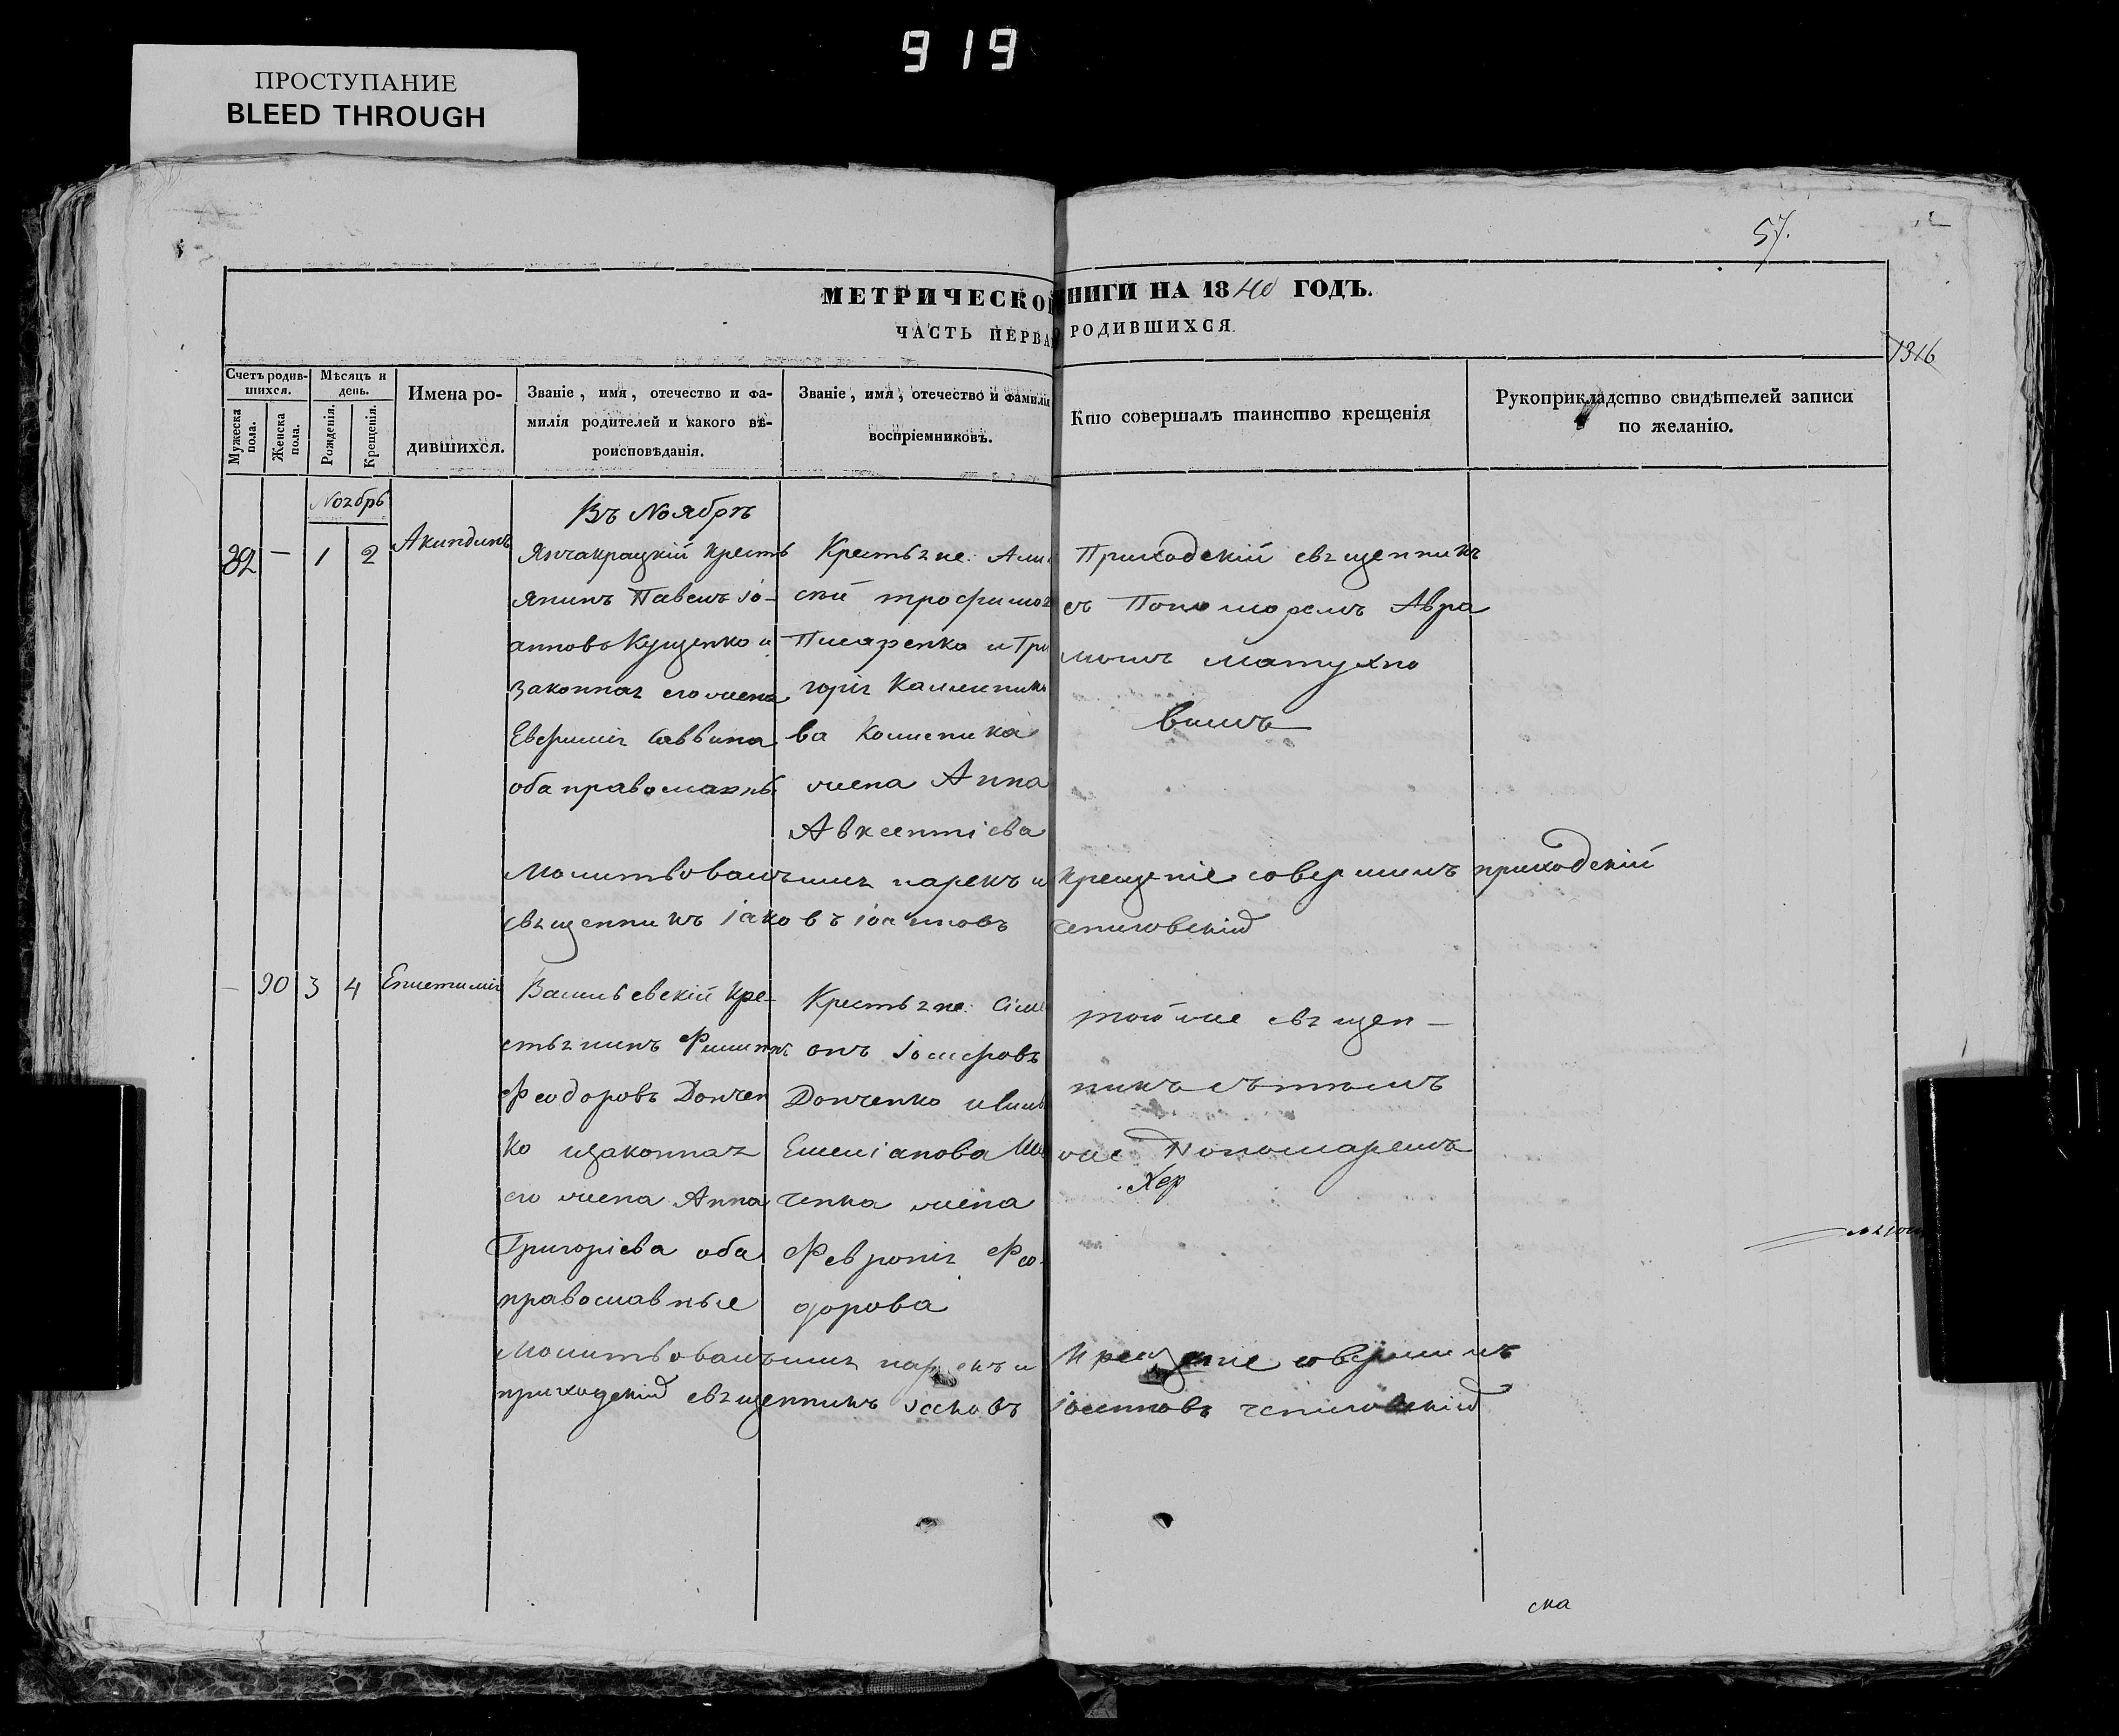 919
ПРОСТУПАНИЕ
BLEED THROUGH
57.
МЕТРИЧЕСКОЙ КНИГИ НА 1840 ГОДЪ.
ЧАСТЬ ПЕРВАЯ О РОДИВШИХСЯ.
1316
Счетъ родившихся.
Мужеска пола.
Женска пола.
Мѣсяцъ и день.
Рожденія.
Крещенія.
Имена родившихся.
Званіе, имя, отечество и фамилія родителей и какого вѣроисповѣданія.
Званіе, имя, отечество и фамилія воспріемниковъ.
Кто совершалъ таинство крещенія
Рукоприкладство свидѣтелей записи по желанію.
Ноябрь
Въ Ноябрѣ
32 — 1 2 Акиндинъ
Янчакрацкій кресть
янинъ Павелъ Іо-
анновъ Кущенко и
законная его жена
Евфимія Саввина
оба православны
Крестьяне:
Трофимов
Писаренко и Гри
горія Каллиников
ва
жена Анна
Авксентіева
Приходскій священникъ
съ Пономаремъ Авра
момъ Матухно
вымъ
Молитвовалъ имя нарекъ и крещеніе совершилъ приходскій
священникъ Іаковъ Іоанновъ
— 30 3 4 Епистимія
Васильевскій кре-
стьянинъ Филиппъ
Феодоровъ Дончен
ко и законная
его жена Анна
Григоріева оба
православные
Крестьяне: Сіме
онъ Іосифовъ
Донченко и
Емеліанова
ченка жена
Февронія Фео
дорова
тотъ же священ-
никъ съ тѣмъ
же Пономаремъ
Хер
Молитвовалъ имя нарекъ и крещеніе совершилъ
приходскій священникъ Іаковъ Іоанновъ
ска